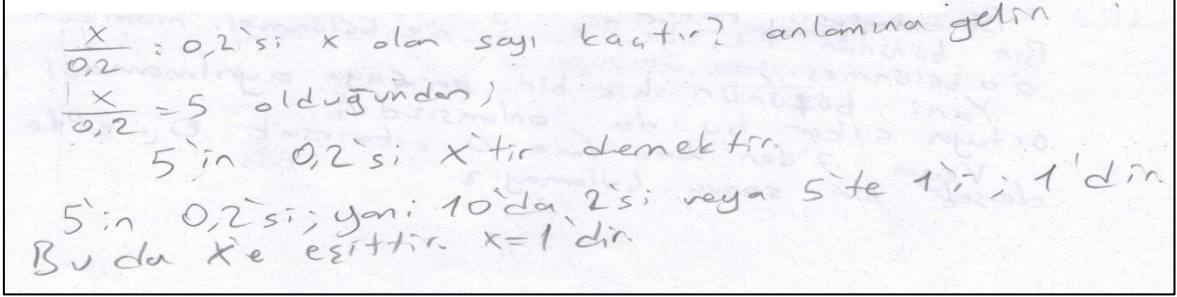 x/0,2 : 0,2'si x olan sayı kaçtır? anlamına gelir
x/0,2 = 5 olduğundan;
5'in 0,2'si x'tir demektir.
5'in 0,2'si; yani 10'da 2'si veya 5'te 1'i; 1'dir.
Bu da x'e eşittir. x=1'dir.